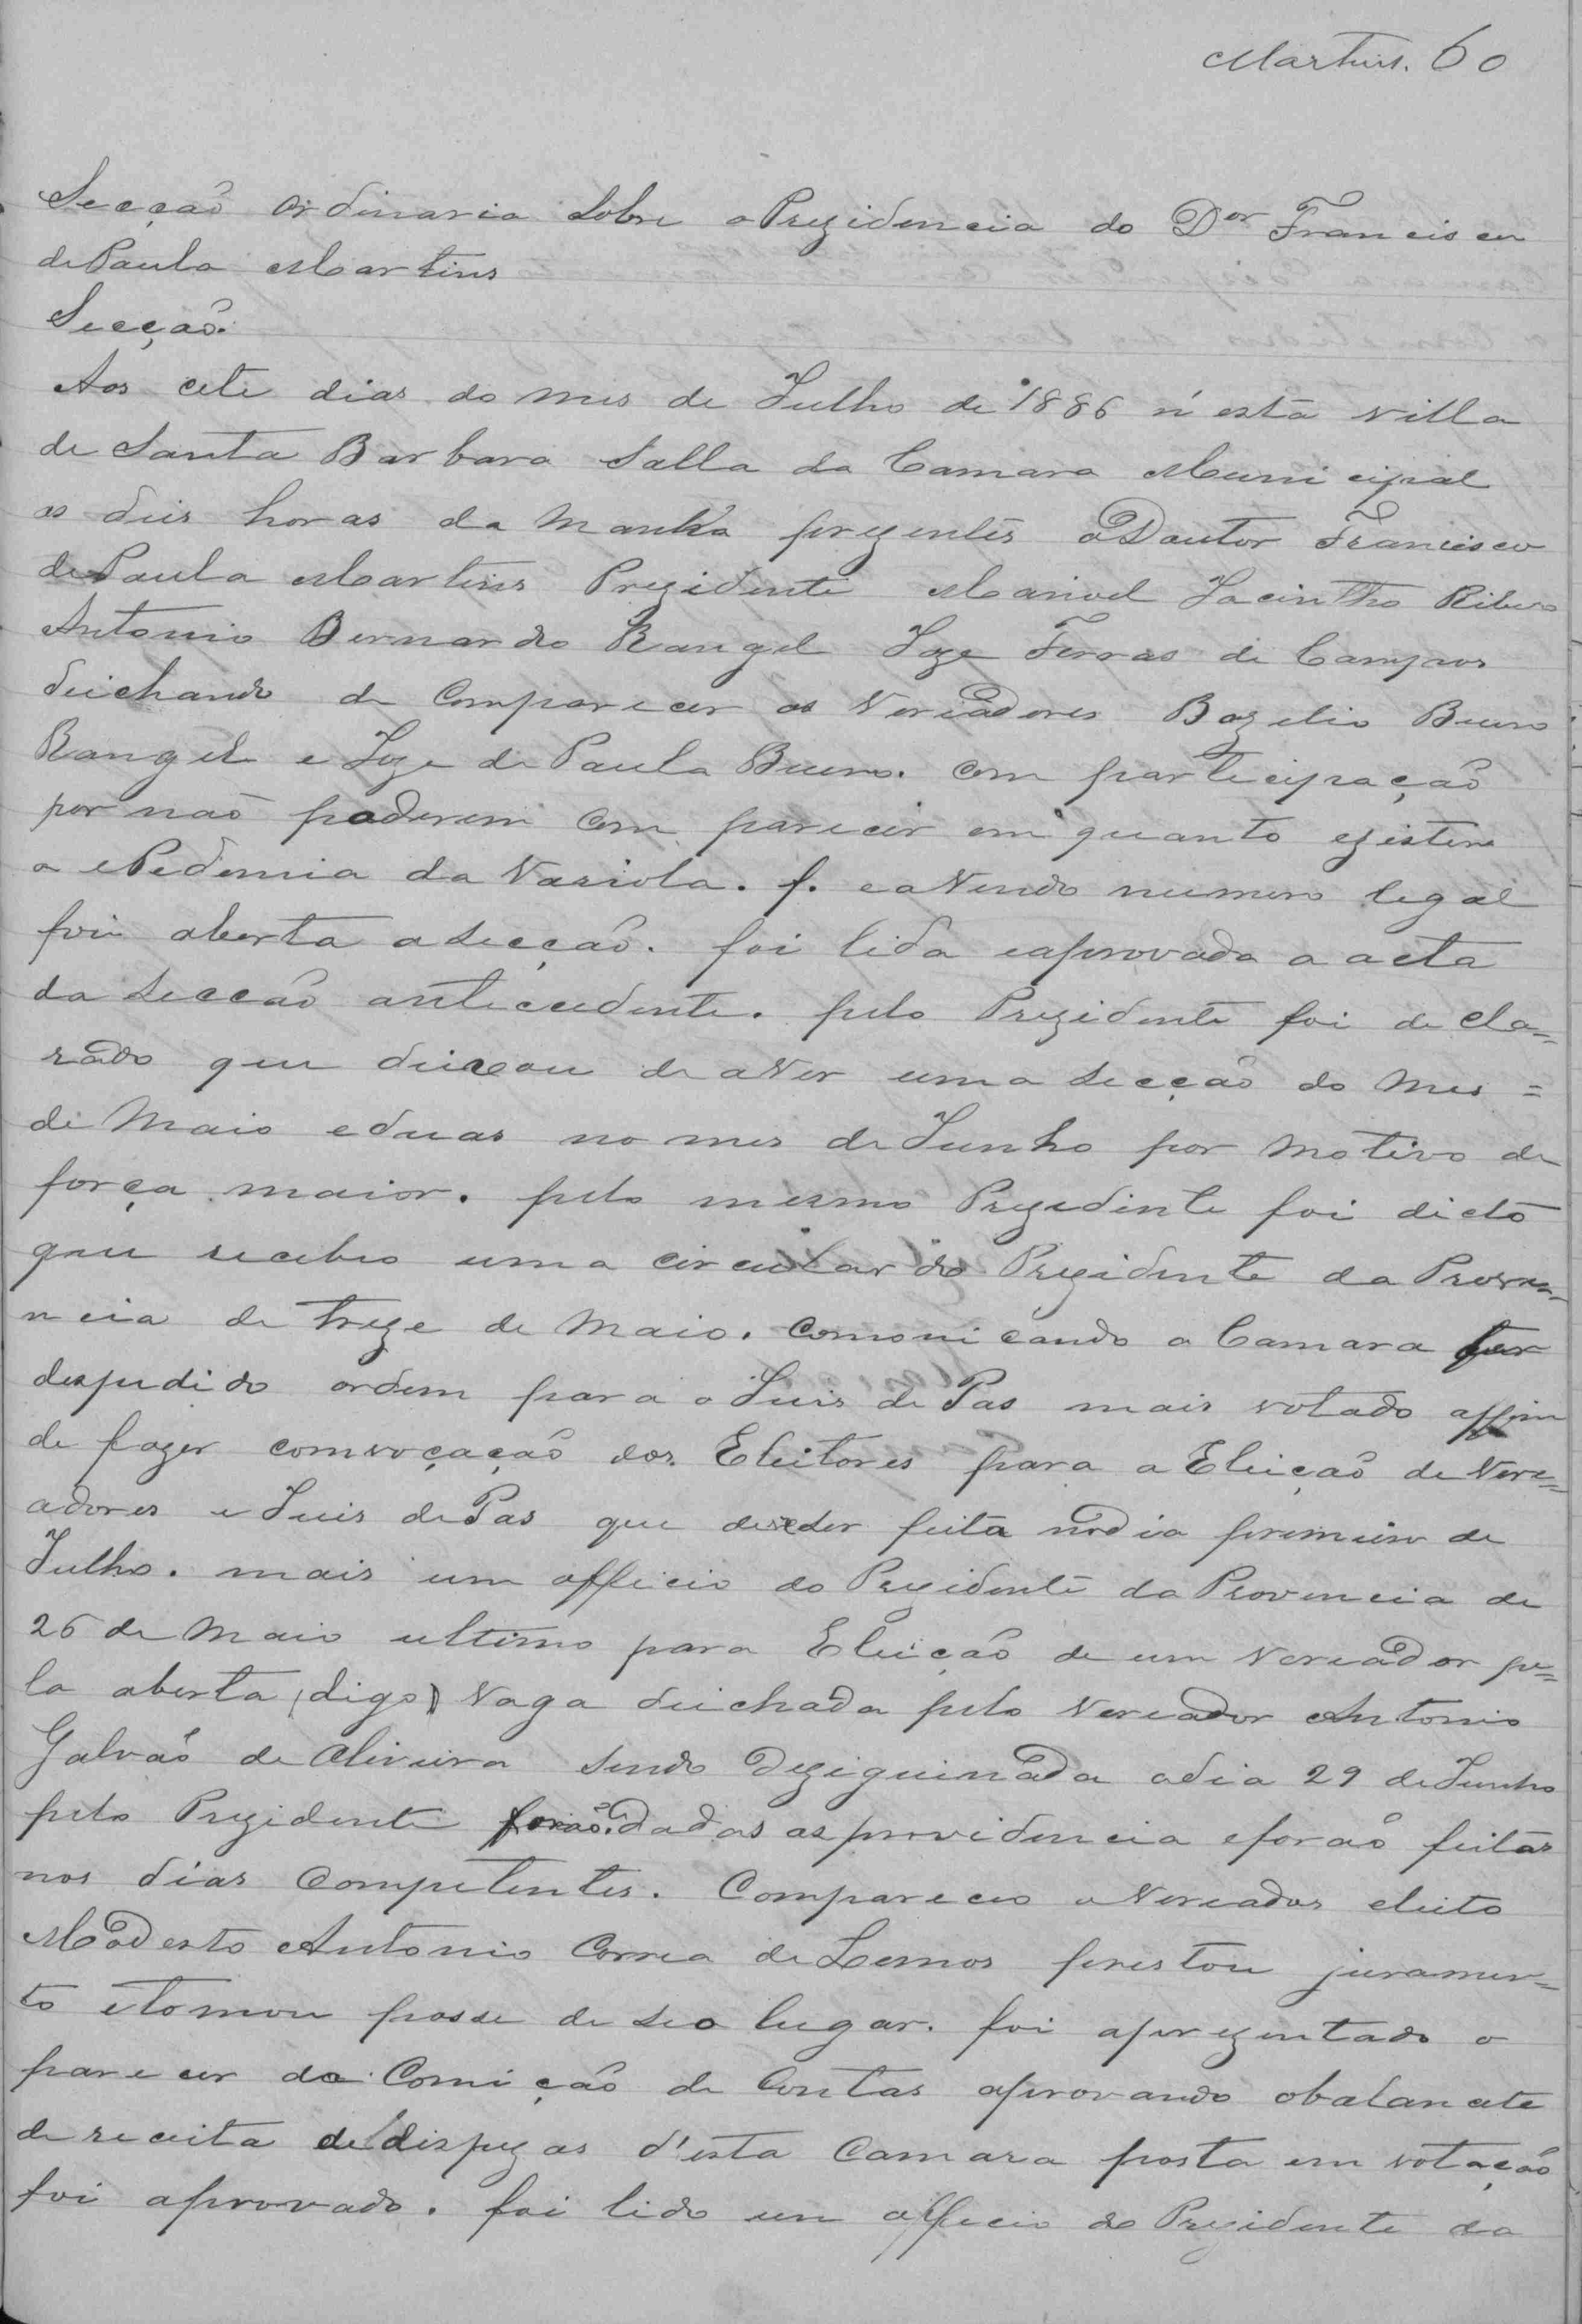 Martins. 60
Secção ordinaria sobre a Prezidencia do Dor Francisco
de Paula Martins
Secção.
Aos cete dias do mes de Julho de 1886 n'esta villa
de Santa Barbara Salla da Camara Municipal
as deis horas da manhã prezentes o Doutor Francisco
de Paula Martins Prezidente Manoel Jacintho Ribeiro
Antonio Bernardo Rangel Joze Ferras de Campos
deichando de Comparecer os Vereadores Bazelio Bueno
Rangel e Joze de Paula Bueno. com participação
por não poderem Com parecer em quanto ezistir
a epedemia da Variola. f. e avendo numero legal
foi aberta a secção. foi lida e aprovada a acta
da secção antecedente. pelo Prezidente foi decla=
rado que deixou de aver uma secção do mes =
de Maio e duas no mes de Junho por motivo de
força maior. pelo mesmo Prezedente foi dicto
que recebeo uma circular do Prezidente da Provin
ncia de treze de Maio. comonicando a Camara ter
despedido ordem para o Juis de Pas mais votado affim
de fazer comvocação dos Eleitores para a Eleição de Vere=
adores e Juis de Pas que deve ser feita no dia primeiro de
Julho. mais um officio do Prezidente da Provencia de
26 de Maio ultimo para Eleição de um Vereador pe=
la aberta (digo) Vaga deichada pelo Vereador Antonio
Galvão de Oliveira sendo Deziguinada o dia 29 de Junho
pelo Prezidente forão dadas as providencia e forão feitas
nos dias Competentes. Compareceo o Vereador eleito
Modesto Antonio Correa de Lemos prestou juramen=
to e tomou posse de seo lugar. foi aprezentado o
parecer da Comição de Contas aprovando o balancete
de receita de dispezas d'esta Camara posta em votação
foi aprovado. foi lido um officio do Prezidente da